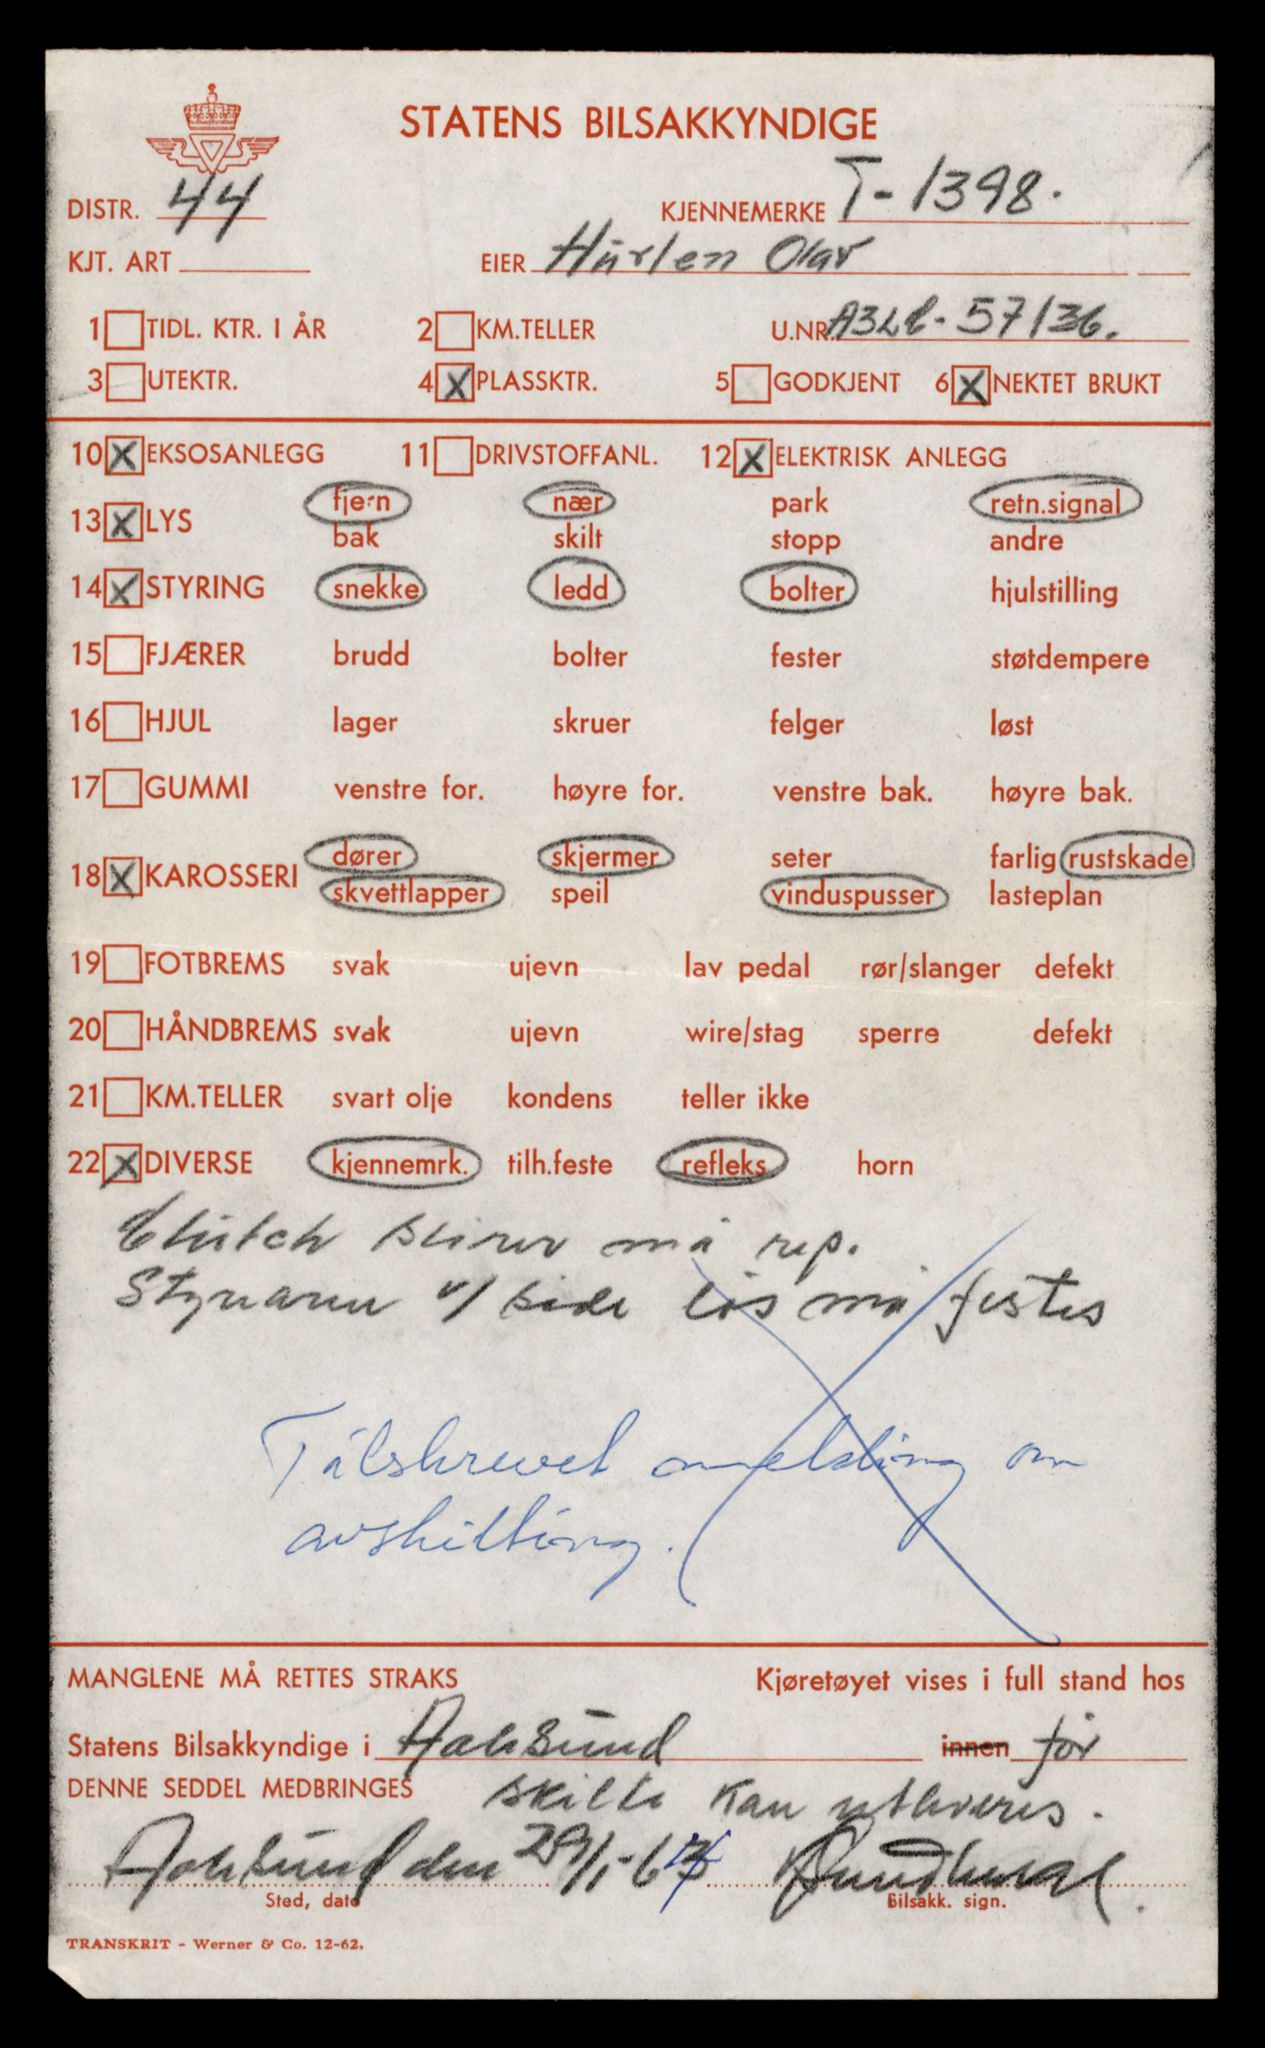 STATENS BILSAKKYNDIGE
DISTR. 44 KJENNEMERKE T-1398.
KJT. ART EIER Hurlen Olav
1 TIDL. KTR. I ÅR 2 KM.TELLER U.NR. A3LC-57136.
3 UTEKTR. 4 X PLASSKTR. 5 GODKJENT 6 X NEKTET BRUKT
10 X EKSOSANLEGG 11 DRIVSTOFFANL. 12 X ELEKTRISK ANLEGG
13 X LYS fjern nær park retn.signal
bak skilt stopp andre
14 X STYRING snekke ledd bolter hjulstilling
15 FJÆRER brudd bolter fester støtdempere
16 HJUL lager skruer felger løst
17 GUMMI venstre for. høyre for. venstre bak. høyre bak.
18 X KAROSSERI dører skjermer seter farlig rustskade
skvettlapper speil vinduspusser lasteplan
19 FOTBREMS svak ujevn lav pedal rør/slanger defekt
20 HÅNDBREMS svak ujevn wire/stag sperre defekt
21 KM.TELLER svart olje kondens teller ikke
22 X DIVERSE kjennemrk. tilh.feste refleks horn
Clutch slirer må rep.
Styrarm v/ side løs må festes
Tilskrevet melding om
avskilting.
MANGLENE MÅ RETTES STRAKS Kjøretøyet vises i full stand hos
Statens Bilsakkyndige i Aalesund innen før
DENNE SEDDEL MEDBRINGES skilte kan utleveres.
Aalesund den 29/1-64
Sted, dato Bilsakk. sign.
TRANSKRIT - Werner & Co. 12-62.